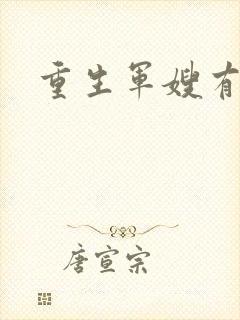 重生军嫂有
唐宣宗